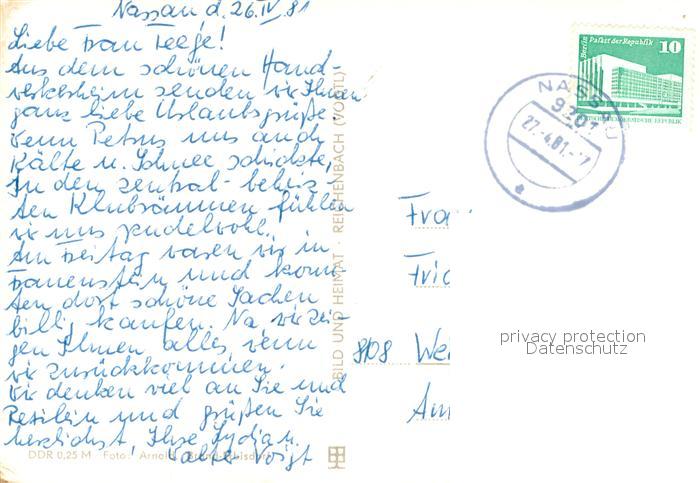 Nassau d. 26.IV.81
Liebe Frau Teege!
Aus dem schönen Hand-
werksheim senden wir Ihnen
ganz liebe Urlaubsgrüße.
Wenn Petrus uns auch
Kälte u. Schnee schickte,
In den zentral-beheiz-
ten Klubräumen fühlen
wir uns pudelwohl.
Am Freitag waren wir in
Frauenstein und konn-
ten dort schöne Sachen
billig kaufen. Na, wir zei-
gen Ihnen alles, wenn
wir zurückkommen.
Wir denken viel an Sie und
und grüßen Sie
herzlichst, Ihre Lydia u.
Walter Voigt
DDR 0,25 M Foto:
BILD UND HEIMAT · REICHENBACH (VOGTL)
Berlin Palast der Republik 10
DEUTSCHE DEMOKRATISCHE REPUBLIK
NASSAU
9201
27.-4.81.-7
Fra
808 Wei
privacy protection
Datenschutz